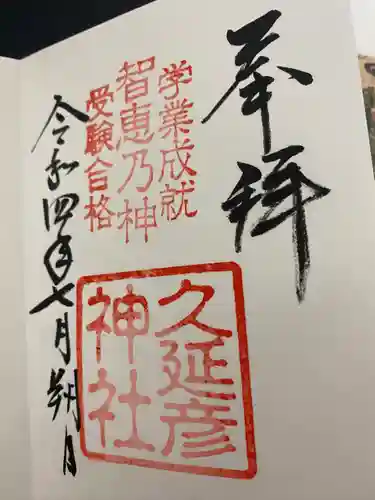 奉拝
学業成就
智恵乃神
受験合格
久延彦
神社
令和四年七月朔日